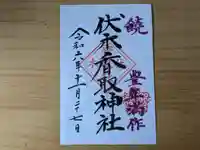 饒
豊年満作
伏木香取神社
令和六年十一月二十七日